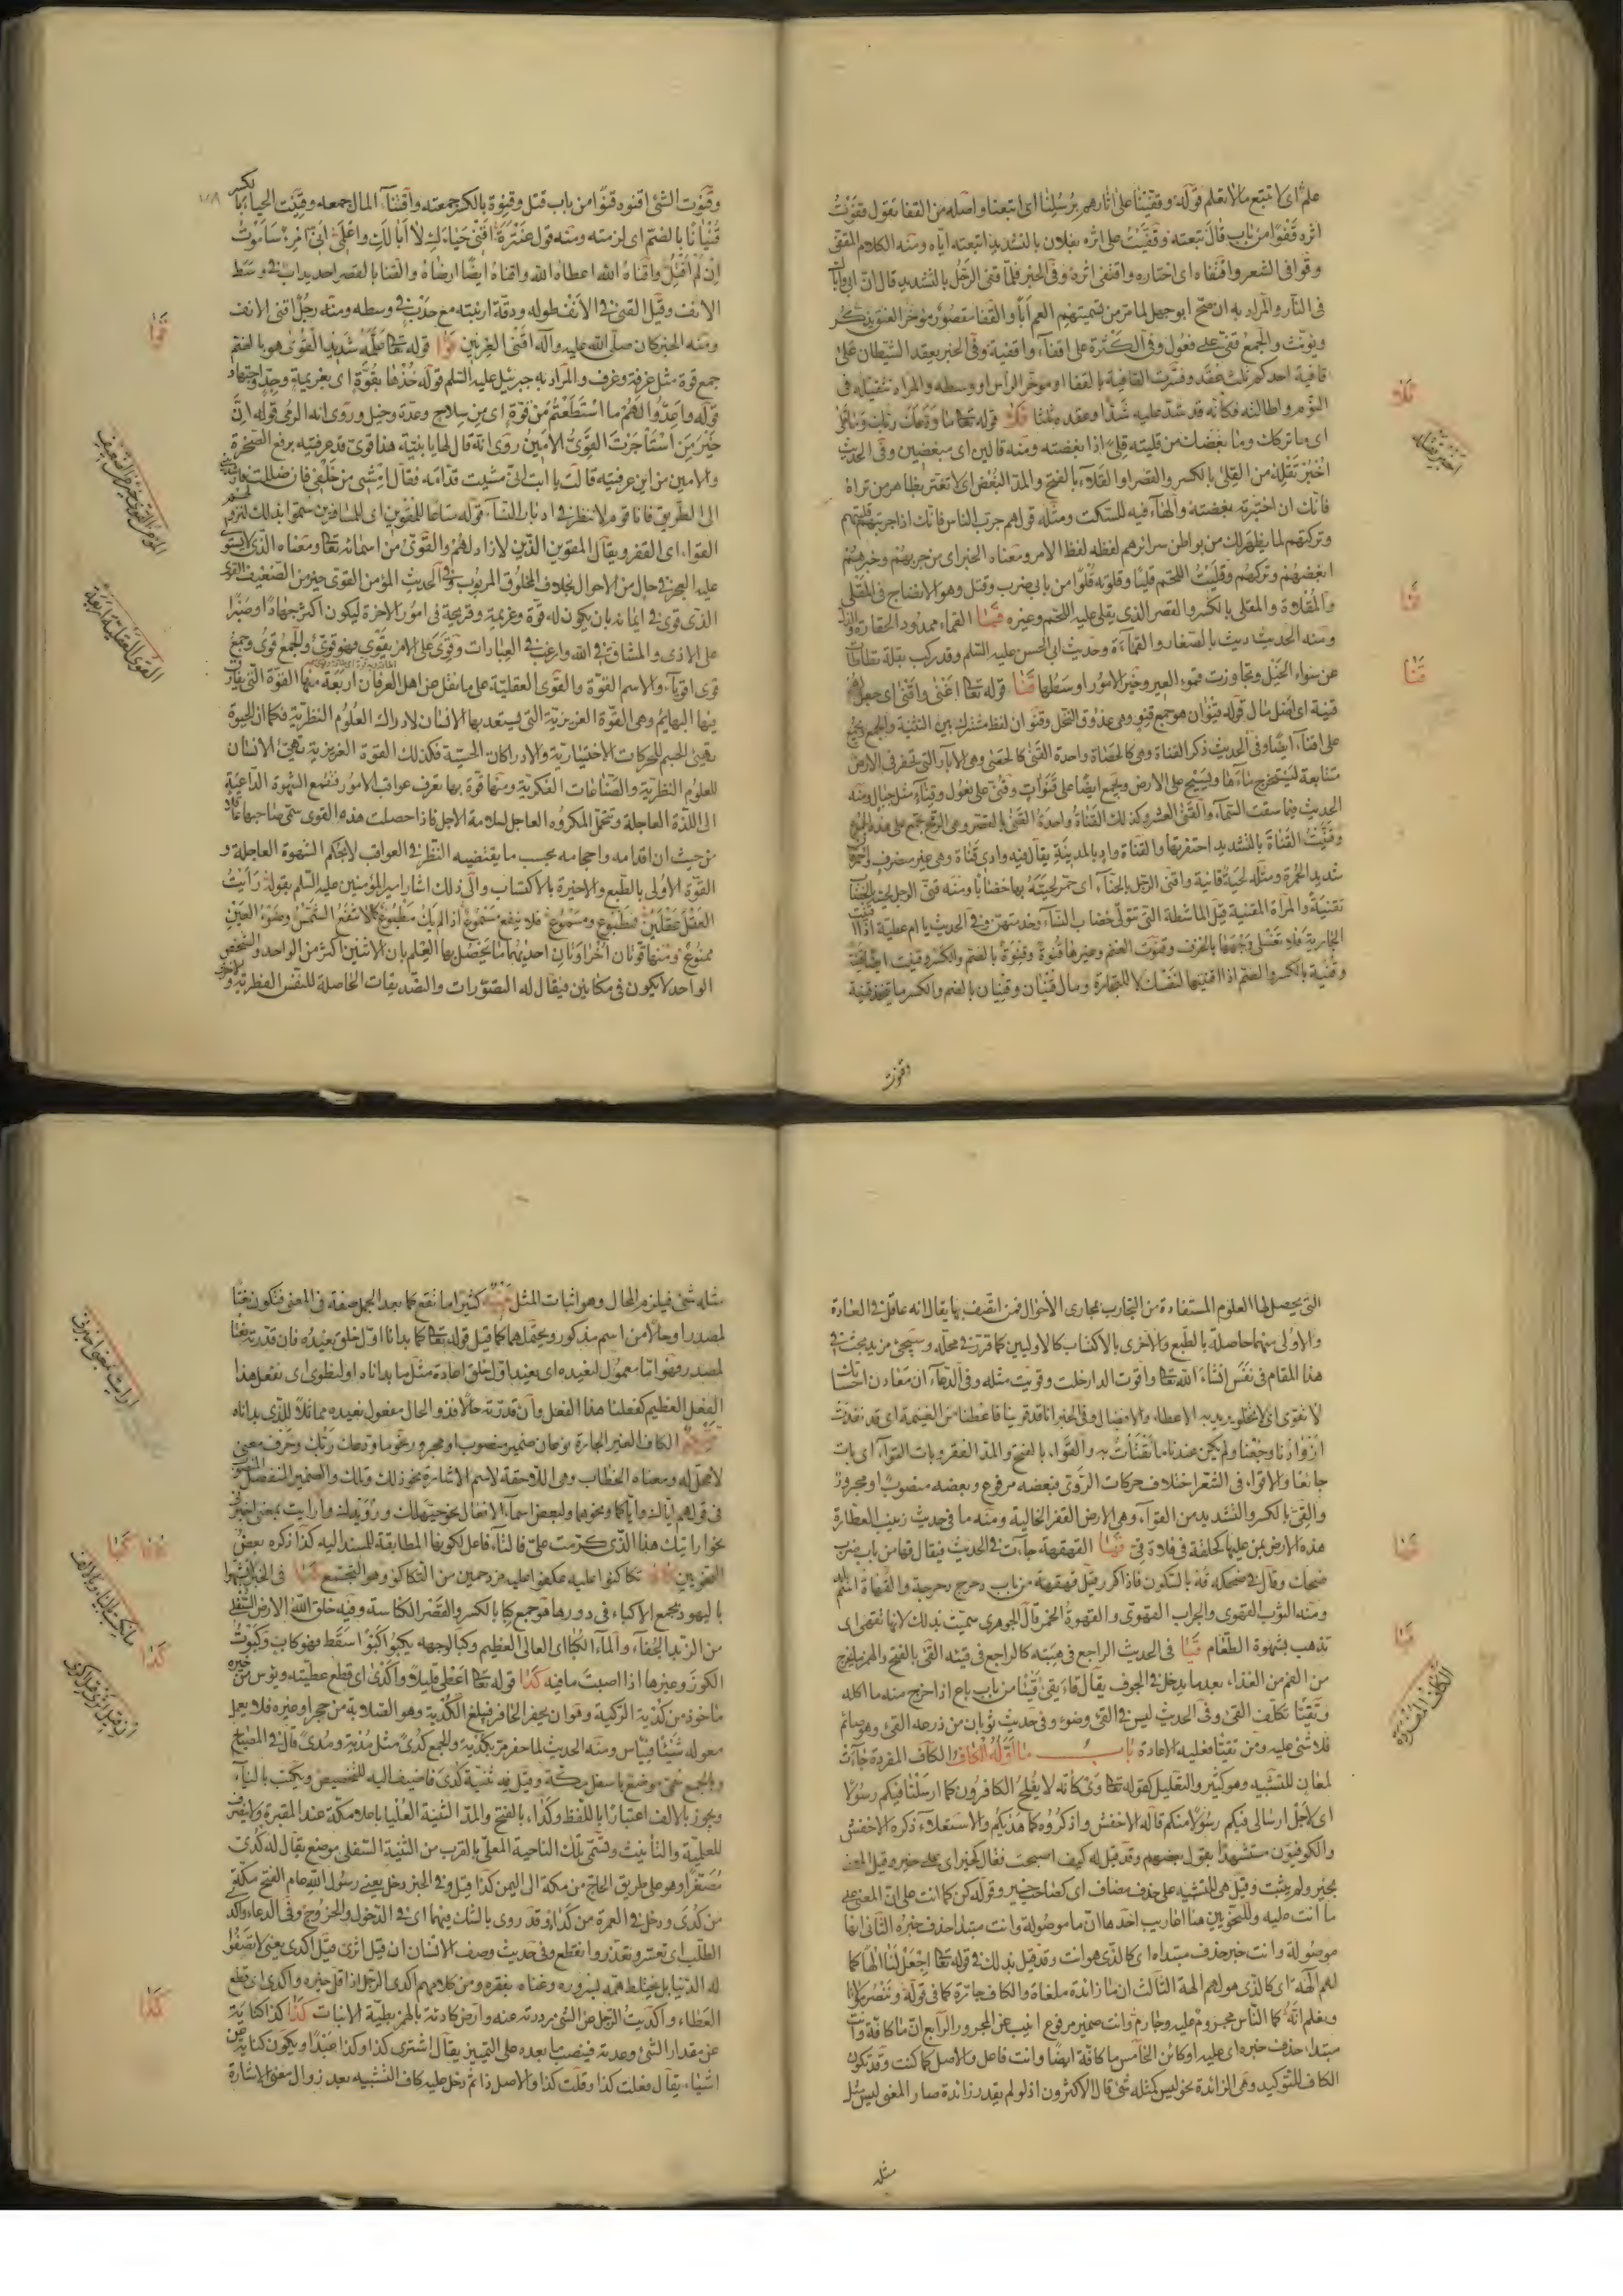 علم اى لا تتبع ما لا تعلم قوله وقفينا على اثارهم برسلنا اى اتبعنا واصله من القفا تقول قفوت
اثره قفوا من باب قال تبعته وقفيت على اثره بفلان بالتشديد اتبعته اياه ومنه الكلام المقفى
وقوافى الشعر واقتفاه اى اختاره واقتفى اثره وفى الخبر فلما قفى الرجل بالتشديد قال ان ابى واباك
فى النار والمراد به ان صح ابو جهل لما مر من تسميتهم العم ابا والقفا مقصور مؤخر العنق يذكر
ويؤنث والجمع قفى على فعول وفى الكثرة على اقفاء واقفية وفى الخبر يعقد الشيطان على
قافية احدكم ثلث عقد وفسرت القافية بالقفا او مؤخر الراس او وسطه والمراد تثقيله فى
النوم واطالته فكانه قد شد عليه شدا وعقده ثلثا قلا قوله تعالى ما ودعك ربك وما قلى
اى ما تركك وما بغضك من قليته قلى اذا بغضته ومنه قالين اى مبغضين وفى الحديث
اخبر تقله من القلى بالكسر والقصر او القلاء بالفتح والمد البغض اى لا تغتر بظاهر من تراه
فانك ان اختبرته بغضته والهاء فيه للسكت ومثله قولهم جرب الناس فانك اذا جربتهم قليتهم
وتركتهم لما يظهر لك من بواطن سرائرهم لفظه لفظ الامر ومعناه الخبر اى من جربهم وخبرهم
ابغضهم وتركهم وقليت اللحم قليا وقلوته قلوا من بابى ضرب وقتل وهو الانضاج فى المقلى
والمقلاة والمقلى بالكسر والقصر الذى يقلى عليه اللحم وغيره قما القماء ممدود الحقارة والذل
ومنه الحديث ديث بالصغار والقماءة وحديث ابى الحسن عليه السلم وقد ركب بغلة تطاطات
عن سمو الخيل وتجاوزت قموء العير وخير الامور اوسطها قنا قوله تعالى اغنى واقنى اى جعل
قنية اى اصل مال قوله قنوان هو جمع قنو وهى عذوق النخل وقنوان لفظ مشترك بين التثنية والجمع ويجمع
على اقناء ايضا وفى الحديث ذكر القناة وهى كالحصاة واحدة القنى كالحصى وهى الابار التى تحفر فى الارض
متتابعة ليستخرج ماءها ويسيح على الارض ويجمع ايضا على قنوات وقنى على فعول وقناء مثل جبال ومنه
الحديث فيما سقت السماء والقنى العشر وكذلك القناة واحدة القنى بالقصر وهى الرمح تجمع على هذه الجموع
وقنيت القناة بالتشديد احتفرتها والقناة واد بالمدينة يقال فيه وادى قناة وهى غير مصرف
شديد الحمرة ومثله لحية قانية واقنى الرجل بالحناء اى حمر لحيته بها خضابا ومنه قنى الرجل لحيته بالخضاب
تقنية والمراة المقنية قيل الماشطة التى تتولى خضاب النساء وخدمتهن وفى الحديث يا ام عطية اذا قنيت
الجارية فلا تغسلى وجهها بالخزف وقنوت الغنم وغيرها قنوة وقنوة بالضم والكسر وقنيت ايضا قنية
وقنية بالكسر والضم اذا اقتنيتها لنفسك لا للتجارة ومال قنيان وقنيان بالضم والكسر ما يتخذ قنية
وقنوت
قلا
قما
قنا
وقنوت الشئ اقنوه قنوا من باب قتل وقنوة بالكسر جمعته واقتناء المال جمعه وقنيت الحياء بالكسر
قنيانا بالضم اى لزمته ومنه قول عنترة اقنى حياءك لا ابا لك واعلمى انى امرؤ ساموت
ان لم اقتل واقناه الله اعطاه الله واقناه ايضا ارضاه والقنا بالقصر احديداب فى وسط
الانف وقيل القنى فى الانف طوله ودقة ارنبته مع حدب فى وسطه ومنه رجل اقنى الانف
ومنه الخبر كان صلى الله عليه وآله اقنى العرنين قوا قوله تعالى علمه شديد القوى هو بالضم
جمع قوة مثل غرفة وغرف والمراد به جبرئيل عليه السلم قوله خذها بقوة اى بعزيمة وجد واجتهاد
قوله واعدوا لهم ما استطعتم من قوة اى من سلاح وعدة وخيل وروى انه الرمى قوله ان
خير من استاجرت القوى الامين روى انه قال لها يا بنية هذا قوى قد عرفتيه برفع الصخرة
والامين من اين عرفتيه قالت يا ابت انى مشيت قدامه فقال امشى من خلفى فان ضللت فارشدينى
الى الطريق فانا قوم لا ننظر فى ادبار النساء قوله متاعا للمقوين اى للمسافرين سموا بذلك لنزولهم
القواء اى القفر ويقال المقوين الذين لا زاد لهم والقوى من اسمائه تعالى ومعناه الذى لا يستولى
عليه العجز فى حال من الاحوال بخلاف المخلوق المربوب وفى الحديث المؤمن القوى خير من الضعيف القوى
الذى قوى فى ايمانه بان يكون له قوة وعزيمة وقريحة فى امور الاخرة ليكون اكثر جهادا وصبرا
على الاذى والمشاق فى الله وارغب فى العبادات وقوى على الامر يقوى فهو قوى والجمع قوى وجمع
قوى اقوياء والاسم القوة والقوى العقلية على ما نقل عن اهل العرفان اربعة منها القوة التى يفارق
فيها البهائم وهى القوة الغريزية التى يستعد بها الانسان لادراك العلوم النظرية فكما ان الحيوة
تهيئ الجسم للحركات الاختيارية والادراكات الحسية فكذلك القوة الغريزية تهيئ الانسان
للعلوم النظرية والصناعات الفكرية ومنها قوة بها تعرف عواقب الامور فتقمع الشهوة الداعية
الى اللذة العاجلة وتتحمل المكروه العاجل لسلامة الاجل فاذا حصلت هذه القوى سمى صاحبها عاقلا
من حيث ان اقدامه واحجامه بحسب ما يقتضيه النظر فى العواقب لا بحكم الشهوة العاجلة و
القوة الاولى بالطبع والاخيرة بالاكتساب والى ذلك اشار امير المؤمنين عليه السلم بقوله رايت
العقل عقلين فمطبوع ومسموع فلا ينفع مسموع اذا لم يك مطبوع كما لا تنفع الشمس وضوء العين
ممنوع ومنها قوتان اخراوتان احديهما ما يحصل بها العلم بان الاثنين اكثر من الواحد والشخص
الواحد لا يكون فى مكانين فيقال له التصورات والتصديقات الحاصلة للنفس الفطرية والاخرى
قوا
المؤمن القوى خير من الضعيف
القوى العقلية اربعة
التى يحصل لها العلوم المستفادة من التجارب بمجارى الاحوال فمن اتصف بها يقال انه عاقل فى العادة
والاولى منهما حاصلة بالطبع والاخرى بالاكتساب كالاوليين كما قرر فى محله وسيجئ مزيد بحث فى
هذا المقام فى نفس انشاء الله تعالى واقوت الدار خلت وقويت مثله وفى الدعاء ان معادن احسانك
لا تقوى اى لا تخلو يريد به الاعطاء والافضال وفى الخبر انا قد قوينا فاعطنا من الغنيمة اى قد نفدت
ازوادنا وجعنا ولم يكن عندنا ما نقتات به والقواء بالفتح والمد القفر وبات القواء اى بات
جائعا والاقواء فى الشعر اختلاف حركات الروى فبعضه مرفوع وبعضه منصوب او مجرور
والقى بالكسر والتشديد من القواء وهى الارض القفر الخالية ومنه ما فى حديث زينب العطارة
هذه الارض بمن عليها كحلقة فى فلاة قى قها القهقهة جاءت فى الحديث فيقال قها من باب ضرب
ضحك وقال فى ضحكه قه بالسكون فاذا كرر قيل قهقهة من باب دحرج دحرجة والقهاة اسم بلد
ومنه الثوب القهوى والجراب القهوى والقهوة الخمر قال الجوهرى سميت بذلك لانها تقهى اى
تذهب بشهوة الطعام قيا فى الحديث الراجع فى هبته كالراجع فى قيئه القئ بالفتح والهمز ما يخرج
من الفم من الغذاء بعد ما يدخل فى الجوف يقال قاء يقئ قيئا من باب باع اذا اخرج منه ما اكله
وتقيا تكلف القئ وفى الحديث ليس فى القئ وضوء وفى حديث ثوبان من ذرعه القئ وهو صائم
فلا شئ عليه ومن تقيا فعليه الاعادة باب ما اوله الكاف الكاف المفردة جاءت
لمعان للتشبيه وهو كثير والتعليل كقوله تعالى وى كانه لا يفلح الكافرون كما ارسلنا فيكم رسولا
اى لاجل ارسالى فيكم رسولا منكم قاله الاخفش واذكروه كما هديكم والاستعلاء ذكره الاخفش
والكوفيون مستشهدا بقول بعضهم وقد قيل له كيف اصبحت فقال كخير اى على خير وقيل المعنى
بخير ولم يثبت وقيل هى للتشبيه على حذف مضاف اى كصاحب خير وقوله كن كما انت على ان المعنى على
ما انت عليه وللنحويين هنا اعاريب احدها ان ما موصولة وانت مبتدا حذف خبره الثانى انها
موصولة وانت خبر حذف مبتداه اى كالذى هو انت وقد قيل بذلك فى قوله تعالى اجعل لنا الها كما
لهم الهة اى كالذى هو لهم الهة الثالث ان ما زائدة ملغاة والكاف جارة كما فى قوله وننصر مولانا
ونعلم انه كما الناس مجروم عليه وجارم وانت ضمير مرفوع انيب عن المجرور الرابع ان ما كافة وانت
مبتدا حذف خبره اى عليه او كائن الخامس ما كافة ايضا وانت فاعل والاصل كما كنت وقد تكون
الكاف للتوكيد وهى الزائدة نحو ليس كمثله شئ قال الاكثرون اذ لو لم يقدر زائدة صار المعنى ليس مثل
مثله
قها
قيا
الكاف المفردة
مثله شئ فيلزم المحال وهو اثبات المثل كثيرا ما تقع كما بعد الجمل صفة فى المعنى فتكون نعتا
لمصدر او حالا من اسم مذكور ويحتملهما كما قيل قوله تعالى كما بدانا اول خلق نعيده فان قدرته نعتا
لمصدر فهو اما معمول لنعيده اى نعيد اول خلق اعادة مثل ما بداناه او لنطوى اى نفعل هذا
الفعل العظيم كفعلنا هذا الفعل وان قدرته حالا فذو الحال مفعول نعيده مماثلا للذى بداناه
الكاف الغير الجارة نوعان ضمير منصوب او مجرور نحو ما ودعك ربك وحرف معنى
لا محل له ومعناه الخطاب وهى اللاحقة لاسم الاشارة نحو ذلك وتلك والضمير المنفصل المنصوب
فى قولهم اياك واياكما ونحوهما ولبعض اسماء الافعال نحو حيهلك ورويدك وارايت بمعنى اخبرنى
نحو ارايتك هذا الذى كرمت على فالتاء فاعل لكونها المطابقة للمسند اليه كذا ذكره بعض
النحويين كاكا تكاكئوا عليه عكفوا عليه مزدحمين من التكاكؤ وهو التجمع كبا فى الخبر لا تشبهوا
باليهود تجمع الاكباء فى دورها هو جمع كبا بالكسر والقصر الكناسة وفيه خلق الله الارض السفلى
من الزبد الجفاء والماء الكباء اى العالى العظيم وكبا لوجهه يكبو كبوا سقط فهو كاب وكبوت
الكوز وغيرها اذا صببت ما فيه كدا قوله تعالى اعطى قليلا واكدى اى قطع عطيته ويئس من خيره
ماخوذ من كدية الركية وهو ان يحفر الحافر فيبلغ الكدية وهو الصلابة من حجر او غيره فلا يعمل
معوله شيئا فيياس ومنه الحديث لما حفر مر بكدية والجمع كدى مثل مدية ومدى قال فى المصباح
وبالجمع سمى موضع باسفل مكة وقيل فيه ثنية كدى فاضيف اليه للتخصيص ويكتب بالياء
ويجوز بالالف اعتبارا باللفظ وكداء بالفتح والمد الثنية العليا باعلا مكة عند المقبرة ولا ينصرف
للعلمية والتانيث وتسمى تلك الناحية المعلى بالقرب من الثنية السفلى موضع يقال له كدى
مصغرا وهو على طريق الخارج من مكة الى اليمن كذا قيل وفى الخبر دخل يعنى رسول الله عام الفتح مكة
من كدى ودخل فى العمرة من كداء وقد روى بالشك فيهما اى فى الدخول والخروج وفى الدعاء واكدى
الطلب اى تعسر وتعذر وانقطع وفى حديث وصف الانسان ان قيل اثرى قيل اكدى يعنى لا تصفو
له الدنيا بل يختلط همه بسروره وغناه بفقره ومن كلامهم اكدى الرجل اذا قل خيره واكدى اى قطع
العطاء واكديت الرجل عن الشئ رددته عنه وارض كادئة بالهمز بطيئة الانبات كذا كذا كناية
عن مقدار الشئ وعدته فينصب ما بعده على التمييز يقال اشترى كذا وكذا عبدا ويكون كناية عن
اشياء يقال فعلت كذا وقلت كذا والاصل ذا ثم دخل عليه كاف التشبيه بعد زوال معنى الاشارة
ارايت بمعنى اخبرنى
كبا
كدا
كذا